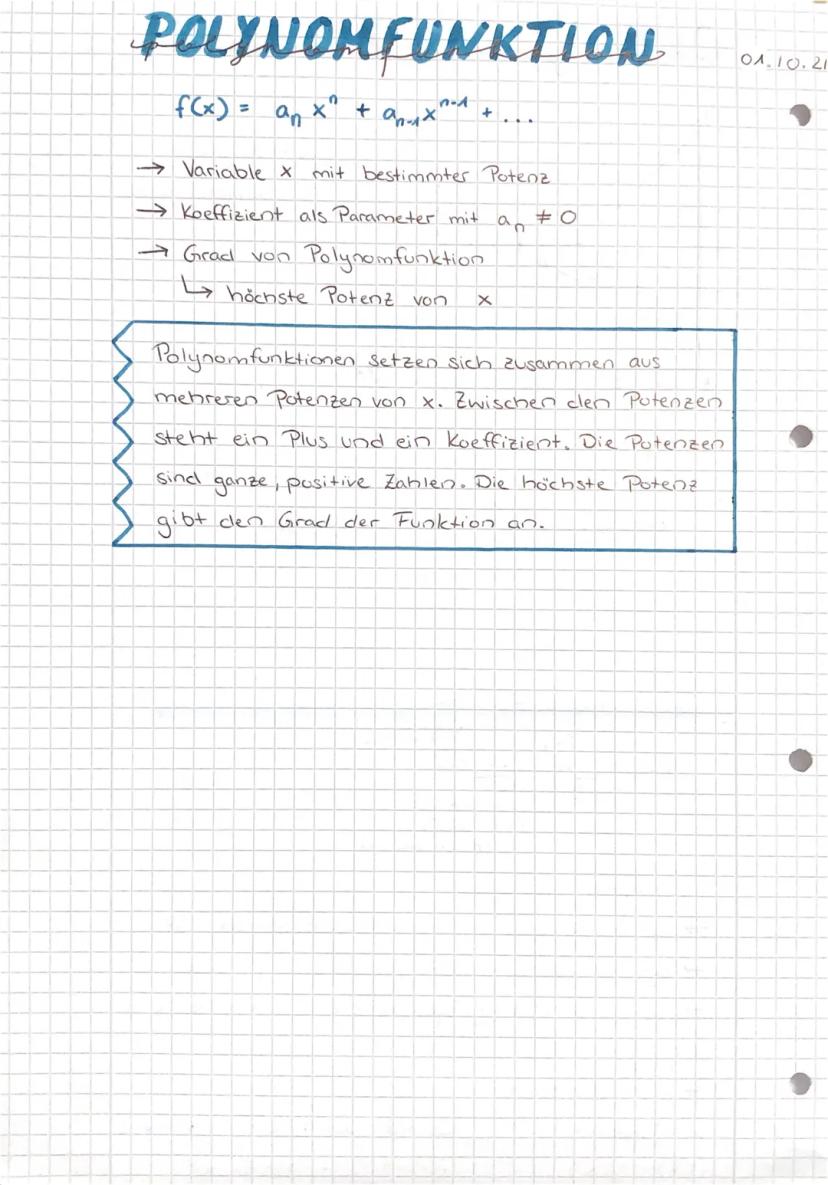 POLYNOMFUNKTION
01.10.21
f(x) = aₙ xⁿ + aₙ₋₁xⁿ⁻¹ + ...
→ Variable x mit bestimmter Potenz
→ Koeffizient als Parameter mit aₙ ≠ 0
→ Grad von Polynomfunktion
↳ höchste Potenz von x
Polynomfunktionen setzen sich zusammen aus
mehreren Potenzen von x. Zwischen den Potenzen
steht ein Plus und ein Koeffizient. Die Potenzen
sind ganze, positive Zahlen. Die höchste Potenz
gibt den Grad der Funktion an.